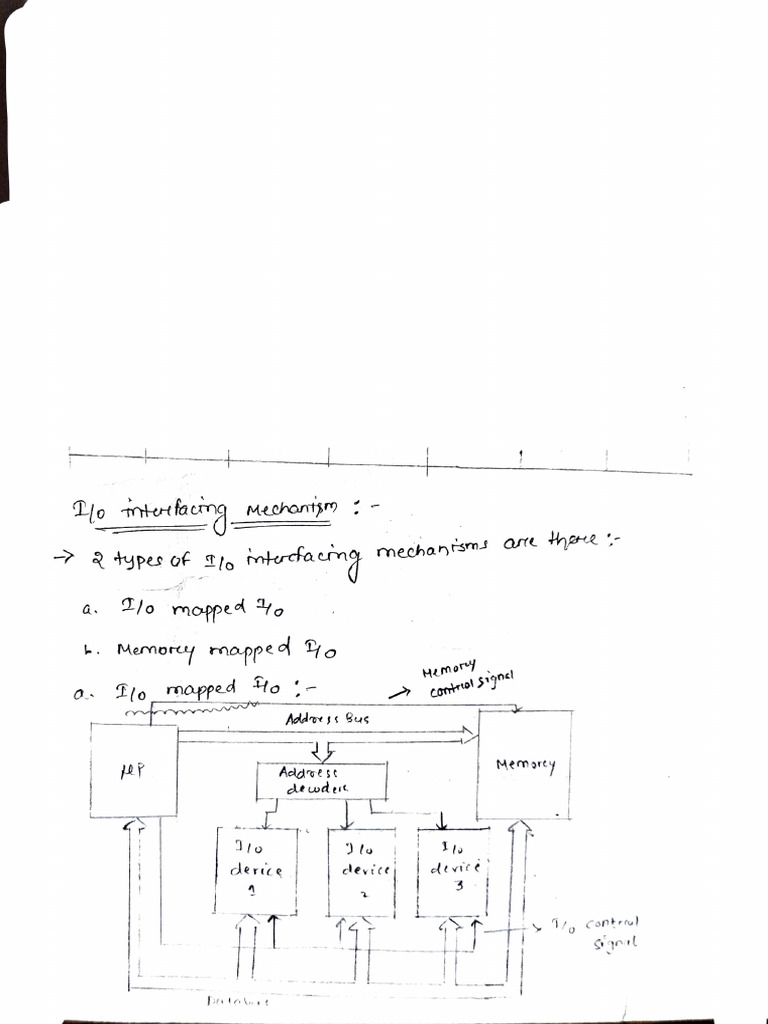 I/O interfacing Mechanism :-
→ 2 types of I/O interfacing mechanisms are there :-
a. I/O mapped I/O
b. Memory mapped I/O
a. I/O mapped I/O :-
→ Memory
control signal
Address Bus
μP
Address
decoder
Memory
I/O
device
1
I/O
device
2
I/O
device
3
I/O control
signal
Databus